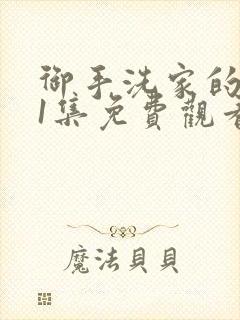 御手洗家的
1集免費觀看
魔法貝貝